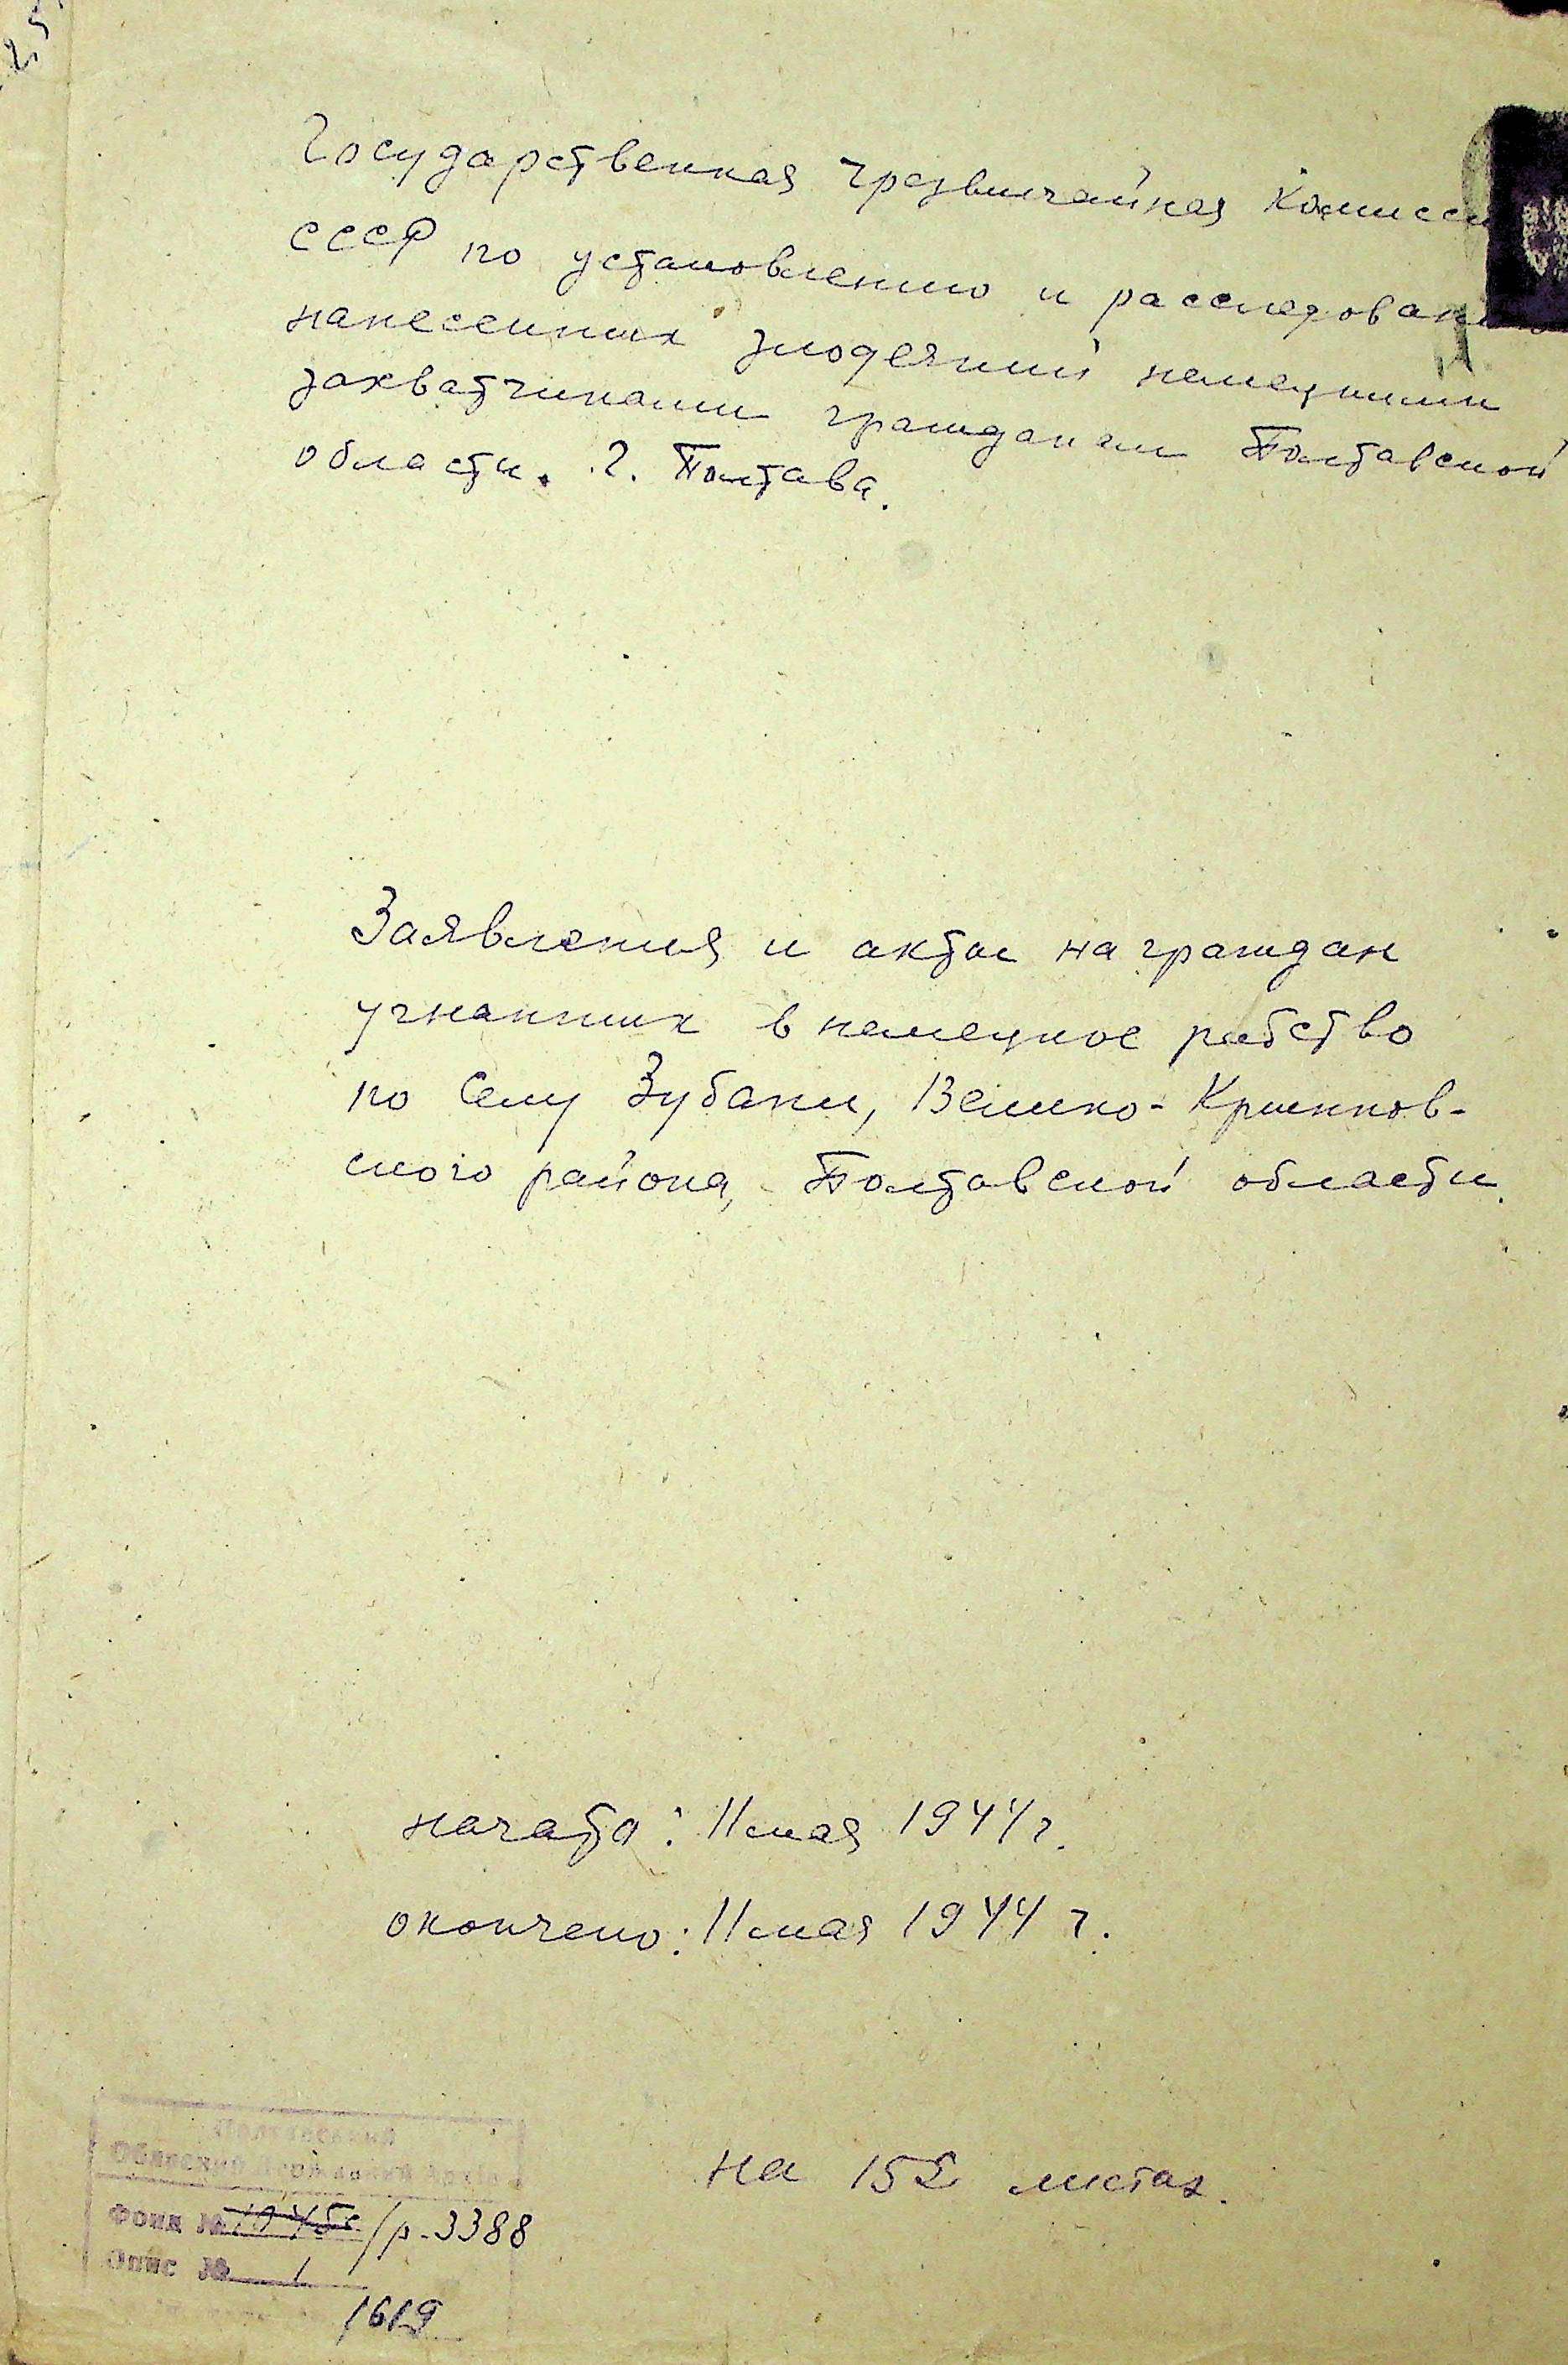 25
Государственная Чрезвычайная Комисси
СССР по установлению и расследован
нанесенних злодеяний немецкими
захватчиками гражданам Полтавской
области. г. Полтава.
Заявления и акты на граждан
угнанных в немецкое рабство
по Селу Зубани, Велико-Крынков-
ского района, Полтавской области.
начато: 11 мая 1944 г.
окончено: 11 мая 1944 г.
на 152 листах.
Полтавский
Обласний Державний Архів
Фонд № /р-3388
Опис № 1
1619